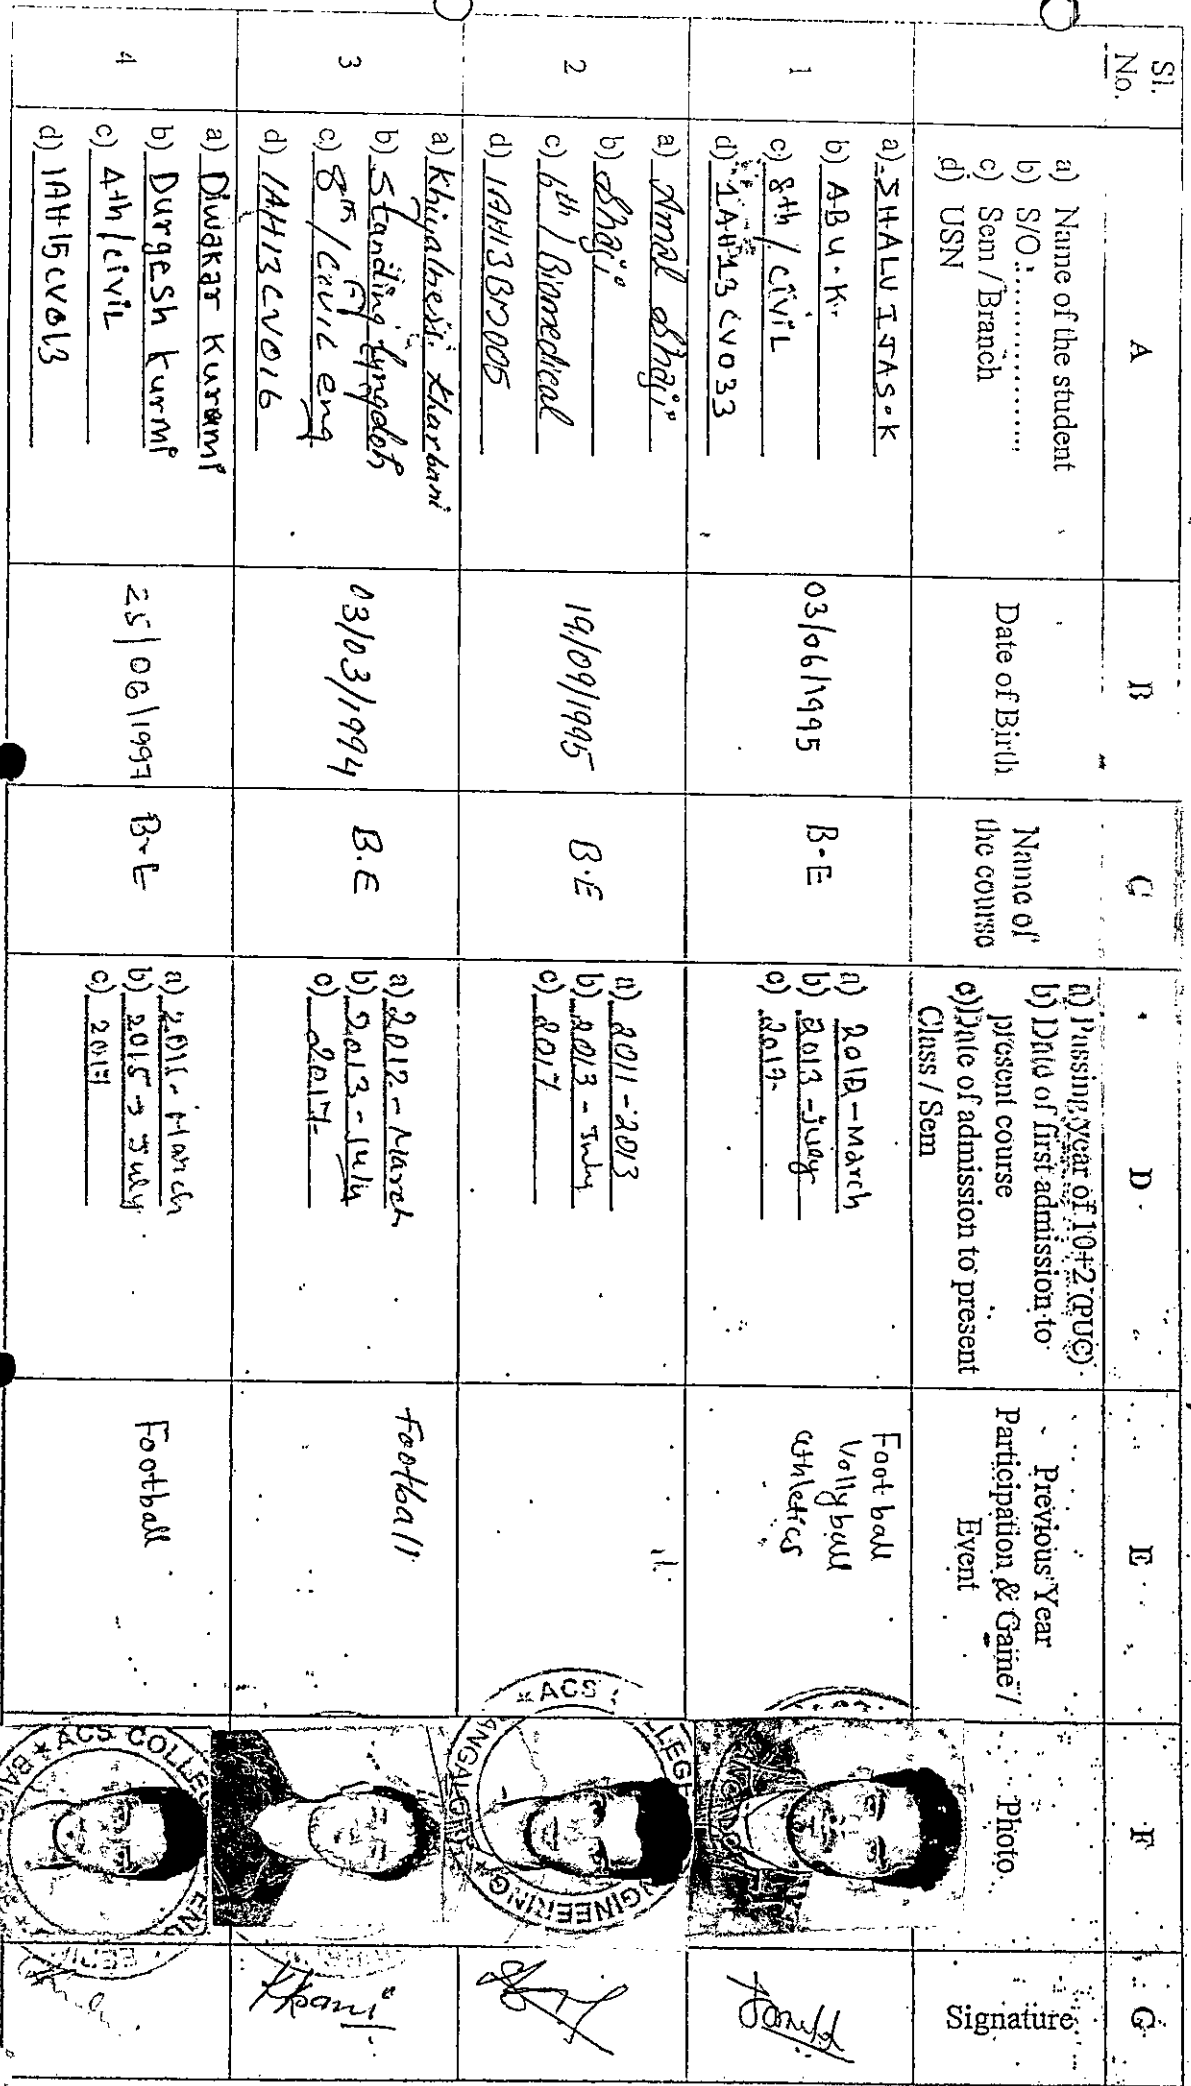 Sl.
No.
A
B
C
D
E
F
G
a) Name of the student
b) S/O...............
c) Sem / Branch
d) USN
Date of Birth
Name of
the course
a) Passing year of 10+2 (PUC)
b) Date of first admission to
present course
c) Date of admission to present
Class / Sem
Previous Year
Participation & Game /
Event
Photo
Signature
1
a) SHALU IJAS.K
b) ABU.K.
c) 8th / CIVIL
d) 1AH13CV033
03/06/1995
B.E
a) 2012-March
b) 2013-july
c) 2017-
Foot ball
Vollyball
athletics
2
a) Amal Shaji
b) Shaji
c) 6th / Biomedical
d) 1AH13BM005
19/09/1995
B.E
a) 2011-2013
b) 2013-July
c) 2017
* ACS
LLEGE
ENGINEERING *
3
a) Khiyalbesi Kharbani
b) Standing Lyngdoh
c) 8th / Civil eng
d) 1AH13CV016
03/03/1994
B.E
a) 2012-March
b) 2013-July
c) 2017-
Football
4
a) Diwakar Kurami
b) Durgesh kurmi
c) 4th/civil
d) 1AH15CV013
25/06/1997
B.E
a) 2011-March
b) 2015 → July
c) 2017
Football
* ACS COLLE